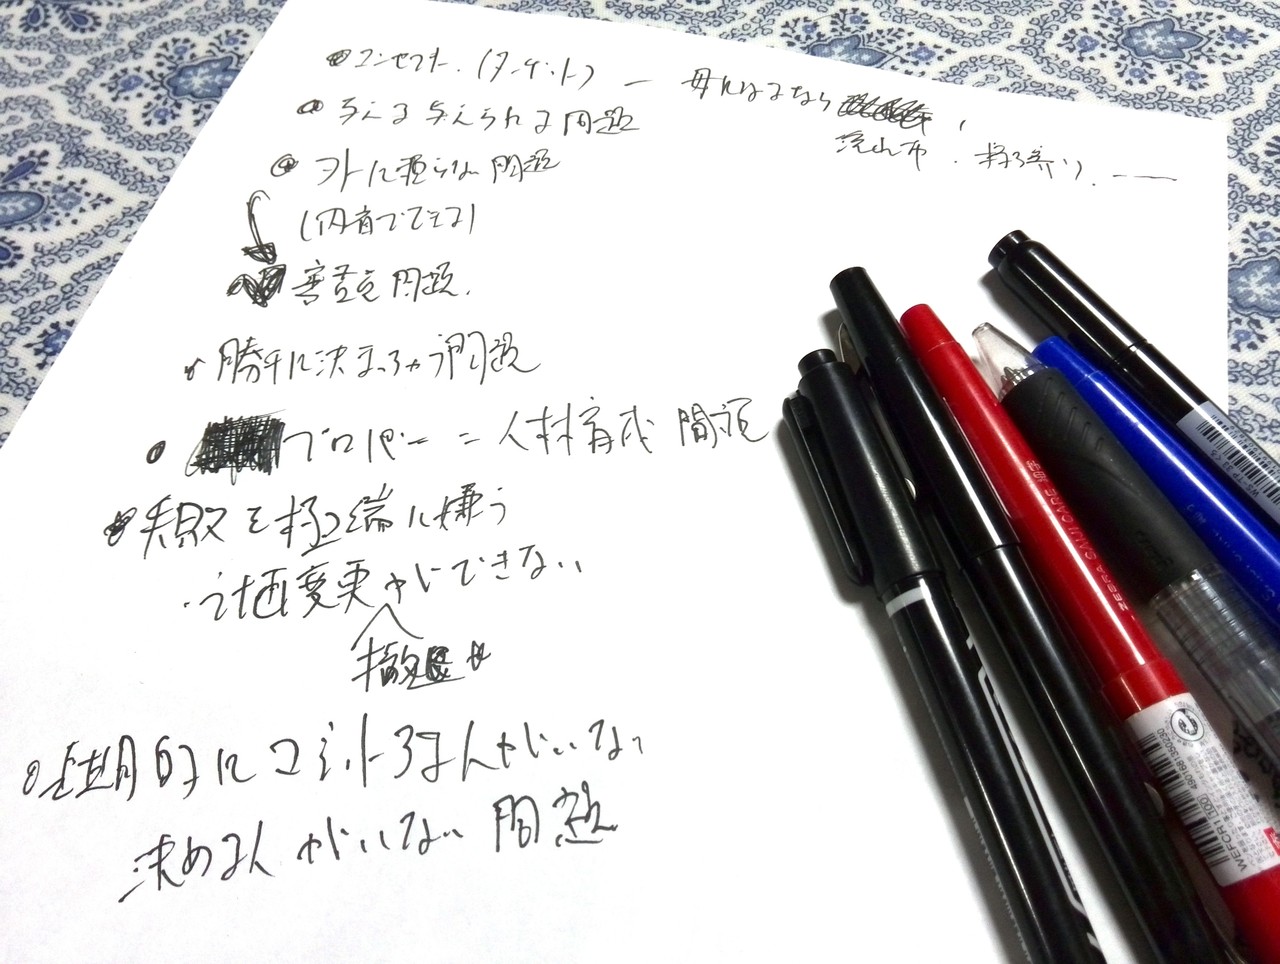 コンセプト.(ターゲット) ー 母になるなら
流山市.
与える与えられる問題
外に頼らない問題
(内省でできる)
審査員問題.
勝手に決まっちゃう問題
プロパー = 人材育成問題
失敗を極端に嫌う
・計画変更ができない
撤退
長期的にコミットする人がいない
決める人がいない問題
ZEBRA SARASA CARE
WEFCR1-100
4901681350230
WS-TP